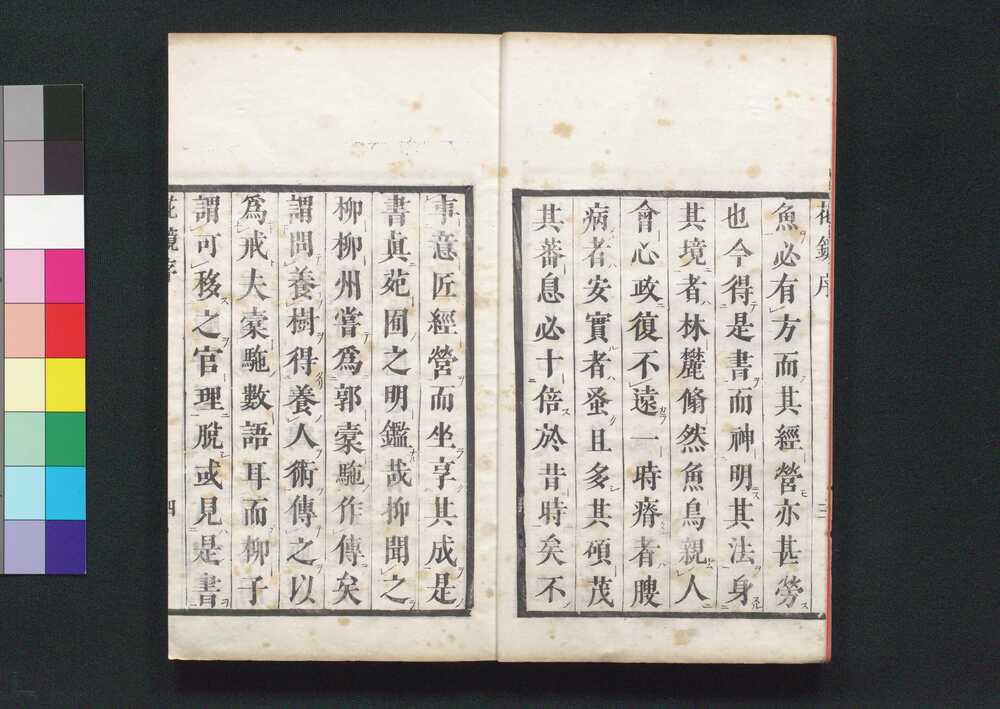 花鏡序 三
魚必有方而其經營亦甚勞
也今得是書而神明其法身
其境者林麓翛然魚鳥親人
會心政復不遠一時瘠者腴
病者安實者蚤且多其碩茂
其蕃息必十倍於昔時矣不
事意匠經營而坐享其成是
書眞苑囿之明鑑哉抑聞之
柳柳州嘗爲郭橐駞作傳矣
謂問養樹得養人術傳之以
爲戒大橐駞數語耳而柳子
謂可移之官理脫或見是書
花鏡序 四